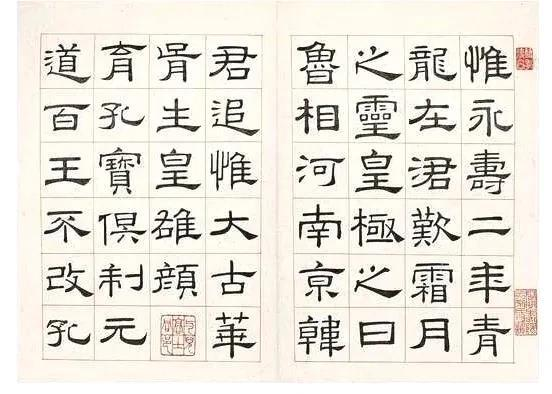 惟永壽二年青
龍在涒歎霜月
之靈皇極之日
魯相河南京韓
君追惟大古華
胥生皇雄顏
育孔寶俱制元
道百王不改孔